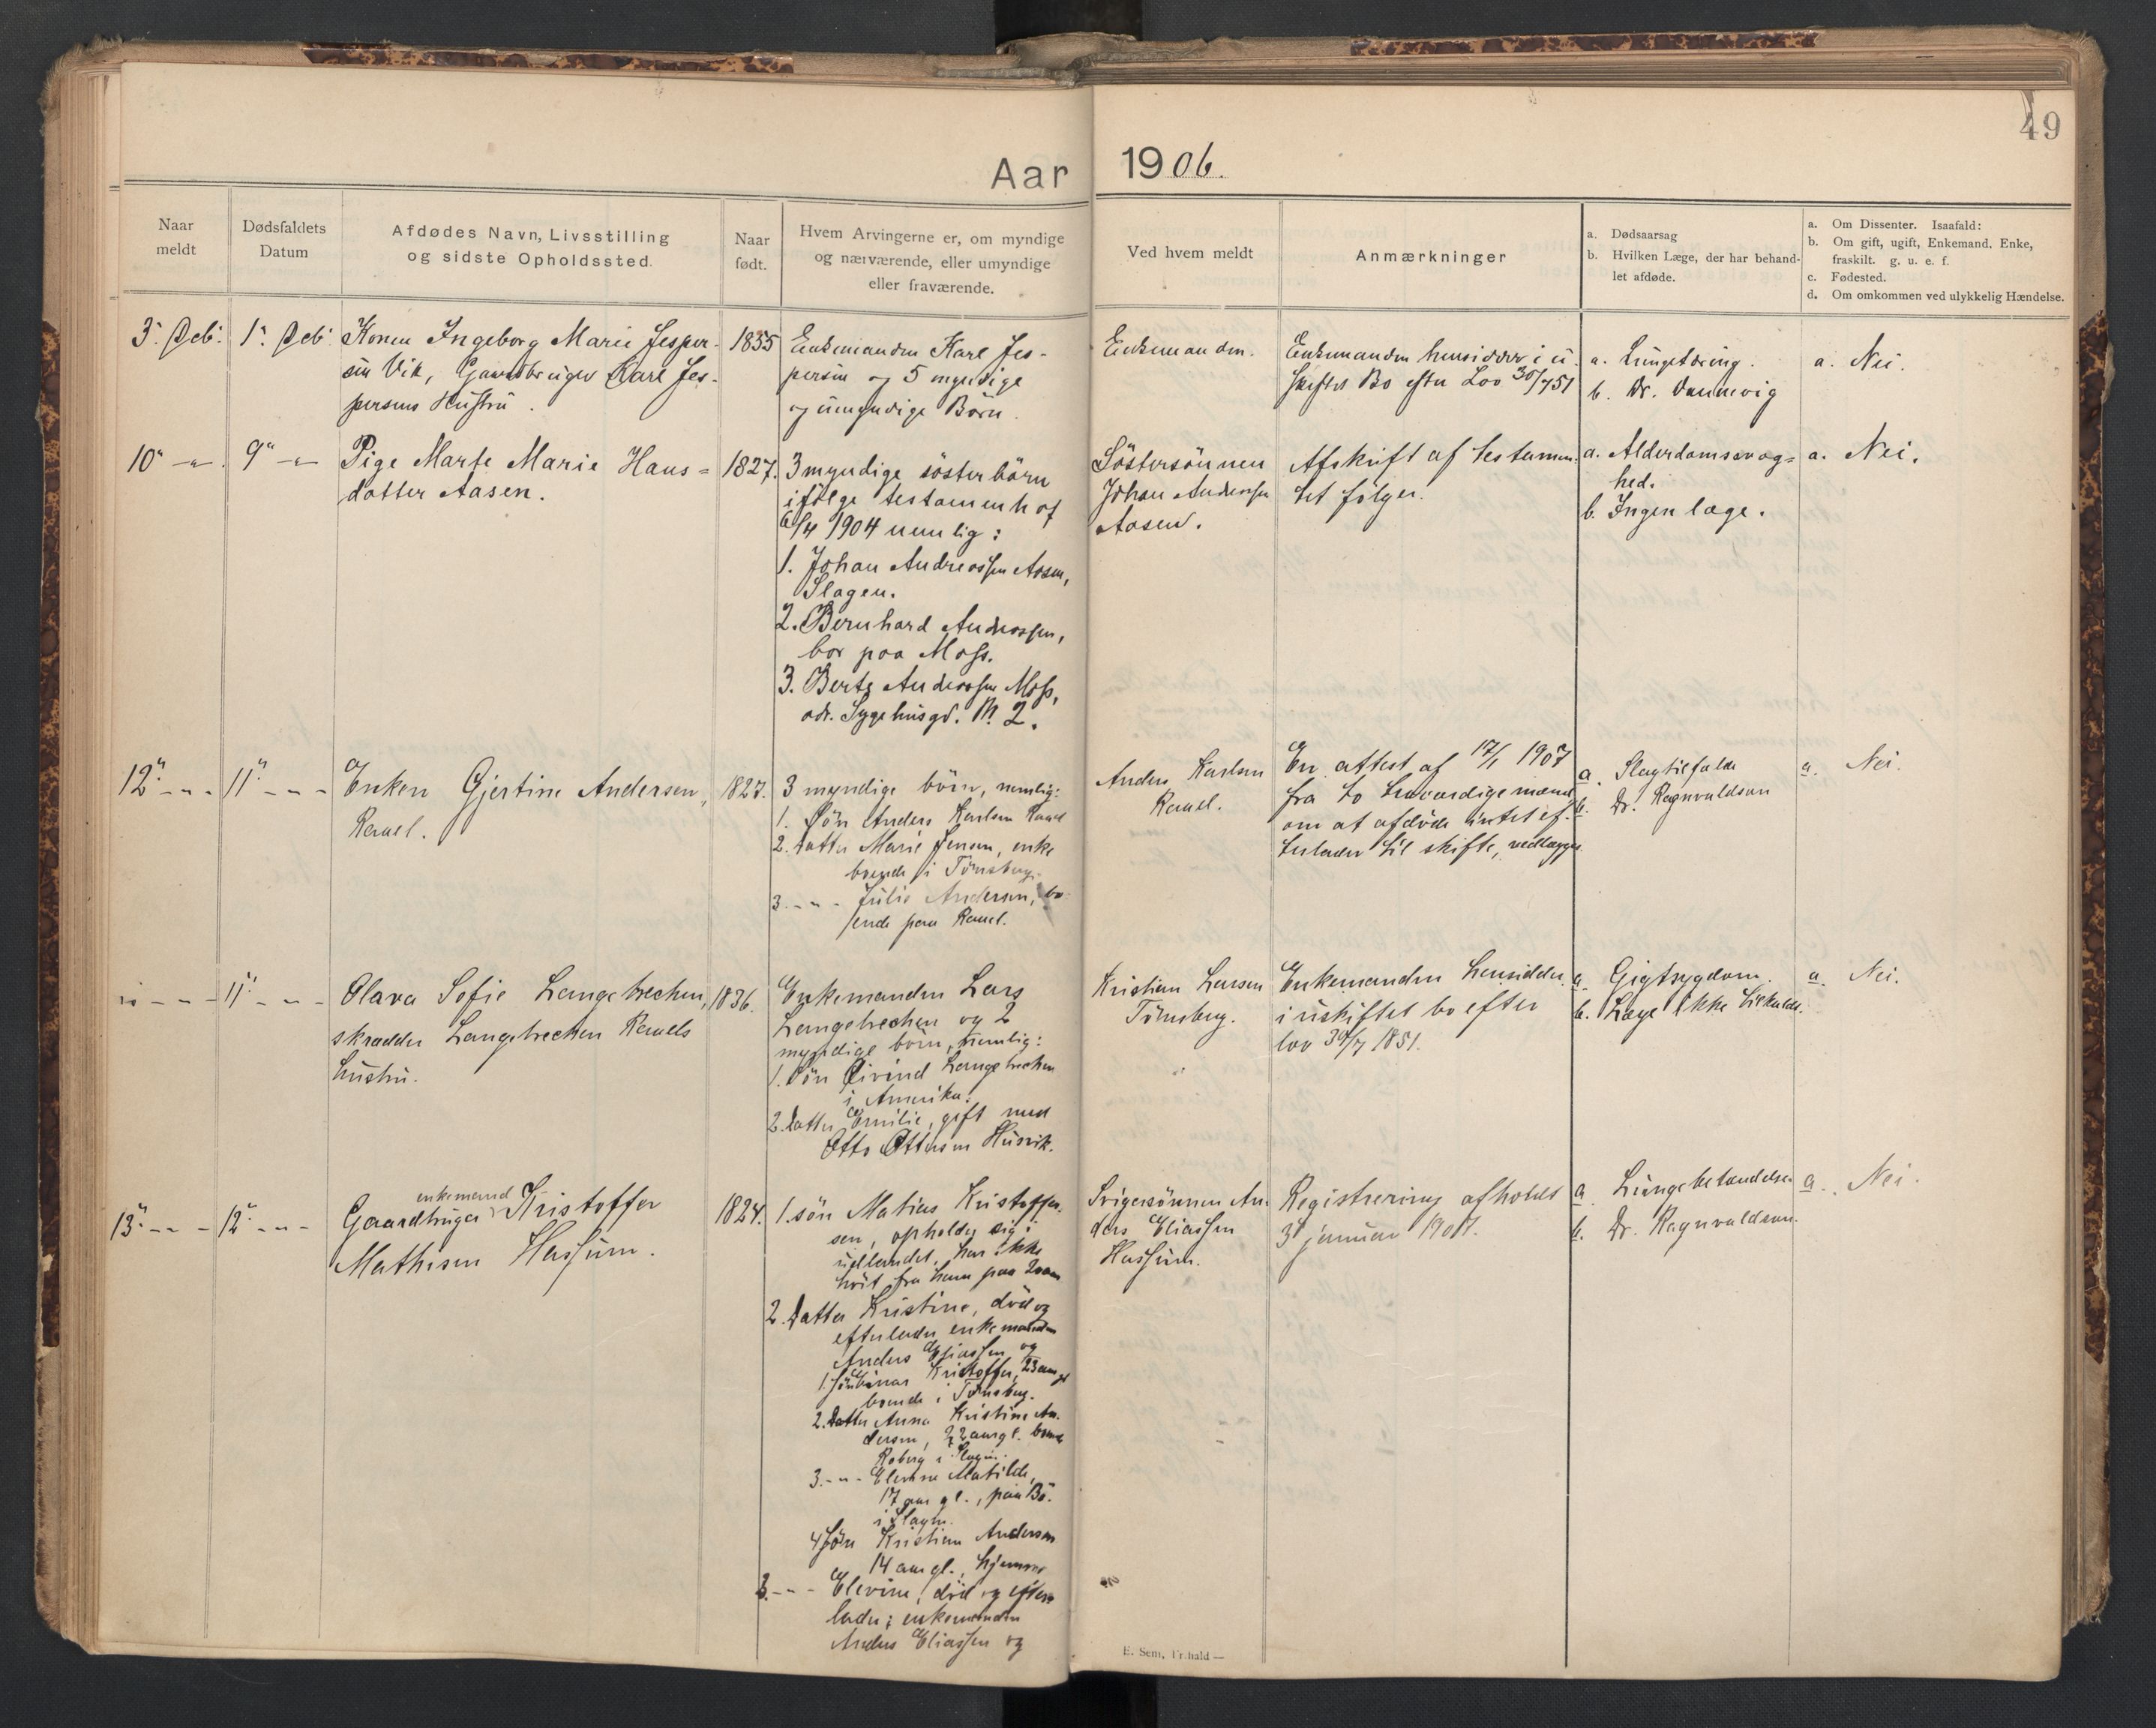 49
Aar 1906.
Naar meldt
Dødsfaldets Datum
Afdødes Navn, Livsstilling og sidste Opholdssted.
Naar født.
Hvem Arvingerne er, om myndige og nærværende, eller umyndige eller fraværende.
Ved hvem meldt
Anmærkninger
a. Dødsaarsag
b. Hvilken Læge, der har behandlet afdøde.
a. Om Dissenter. Isaafald:
b. Om gift, ugift, Enkemand. Enke, fraskilt. g. u. e. f.
c. Fødested.
d. Om omkommen ved ulykkelig Hændelse.
3. Deb. 1. Deb.
Konen Ingeborg Marie Jesper-
sen Vik, Gaardbruger Karl Jes-
persens Hustru.
1855
Enkemanden Karl Jes-
persen og 5 myndige
og umyndige Börn.
Enkemanden.
Enkemanden hensidder i u-
skiftet Bo efter Lov 30/7 51
a. Lungetæring.
b. Dr. Dannevig
a. Nei.
10" —"— 9" —"—
Pige Marte Marie Hans=
datter Aasen.
1827.
3 myndige søsterbörn
ifölge testament af
6/4 1904 nemlig:
1. Johan Andreassen Aasen,
Slagen.
2. Bernhard Andreassen,
bor paa Moss.
3. Berte Andreassen Moss,
adr. Sygehusgd. № 2.
Söstersönnen
Johan Andreassen
Aasen.
Afskrift af testamen-
tet følger.
a. Alderdomssvag=
hed.
b. Ingen læge.
a. Nei.
12" - " - 11" - " -
Enken Gjertine Andersen,
Ramel.
1827.
3 myndige börn, nemlig:
1. Sön Anders Karlsen Ramel
2. Datter Marie Jensen, enke
boende i Tönsberg.
3. - " - Julie Andersen, bo-
ende paa Ramel.
Anders Karlsen
Ramel.
En attest af 17/1 1907
fra to troværdige mænd
om at afdöde intet ef-
terlader til skifte, vedlægges
a. Slagtilfælde
b. Dr. Ragnvaldson
a. Nei.
" - " - 11" - " -
Olava Sofie Langebrechen,
skrædder Langebrechen Ramels
hustru.
1836.
Enkemanden Lars
Langebrechen og 2
myndige börn, nemlig:
1. Sön Eivind Langebrechen
i Amerika.
2. Datter Emilie, gift med
Otto Ottersen Husvik.
Kristian Larsen
Tönsberg.
Enkemanden hensidder
i uskiftet bo efter
lov 30/7 1851.
a. Gigtsygdom.
b. Læge ikke tilkaldt.
a. Nei.
13" - " - 12" - " -
enkemand
Gaardbruger Kristoffer
Mathisen Hassum.
1824.
1. sön Matias Kristoffer-
sen, opholder sig i
udlandet, har ikke
hört fra ham paa 2 aar
2. Datter Kristine, död og
efterlader enkemanden
Anders Eliassen og
Kristoffer, 23 aar gl
boende i Tönsberg.
2. Datter Anna Kristine An-
dersen, 22 aar gl. boende
Roberg i Slagen.
3. - " - Matilde,
17 aar gl., paa Bö.
i Slagen.
4 Sön Kristian Andersen
14 aar gl., hjemme
3. - " - Elevine, död og efter-
lader: enkemanden
Anders Eliassen og
Svigersönnen An-
ders Eliassen
Hassum.
Registrering afholdt
3 januar 1907.
a. Lungebetændelse
b. Dr. Ragnvaldson.
a. Nei.
E. Sem, Fr.hald —